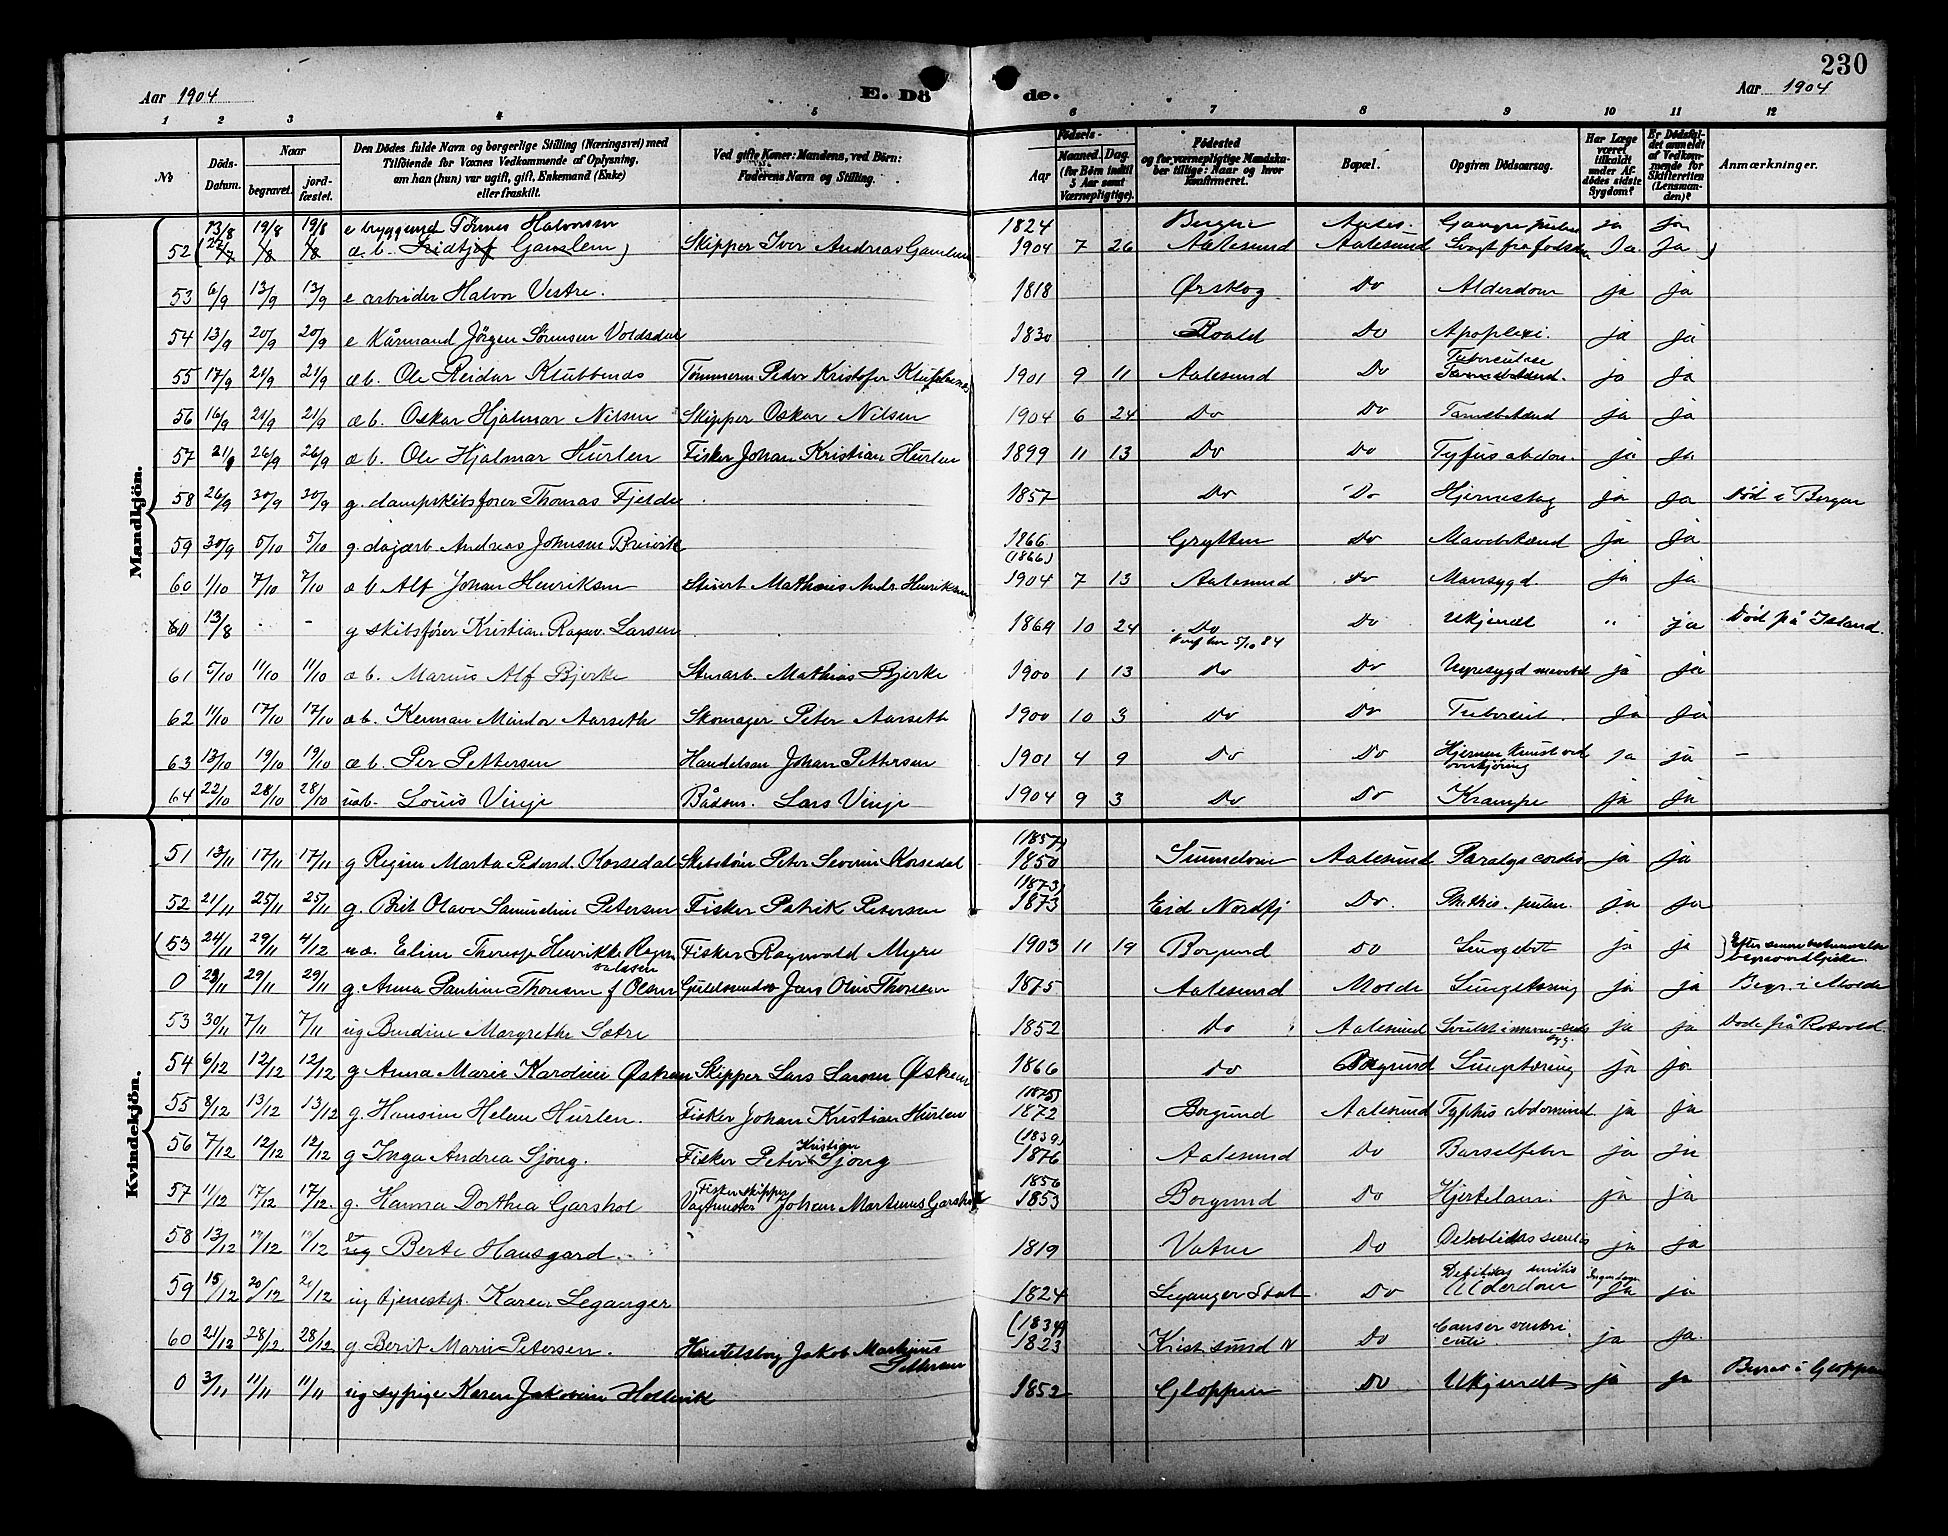 230
Aar 1904
E. Dö de.
Aar 1904
1 2 3 4 5 6 7 8 9 10 11 12
No
Döds-Datum.
Naar
begravet.
jordfæstet.
Den Dödes fulde Navn og borgerlige Stilling (Næringsvei) med
Tilföiende for Voxnes Vedkommende af Oplysning,
om han (hun) var ugift, gift, Enkemand (Enke)
eller fraskilt.
Ved gifte Koner: Mandens, ved Börn:
Faderens Navn og Stilling.
Födsels-
Aar
Maaned. Dag.
(for Börn indtil
5 Aar samt
Værnepligtige).
Födested
og for værnepligtige Mandskaber tillige: Naar og hvor
konfirmeret.
Bopæl.
Opgiven Dödsaarsag.
Har Læge
været
tilkaldt
under Afdödes sidste
Sygdom?
Er Dödsfaldet anmeldt
af Vedkommende for
Skifteretten
(Lensmanden)?
Anmærkninger.
Mandkjön.
13/8 19/8 19/8 e bryggemd Tønnes Halvorsen 1824 Bergen Aales. ja ja
52 (27/7 /8 /8 æ.b. Fridtjof Gamlem) Skipper Iver Andreas Gamlem 1904 7 26 Aalesund Aalesund Svagt fra fødselen Ja Ja )
53 6/9 13/9 13/9 e arbeider Halvor Vestre. 1818 Ørskog Do Alderdom ja ja
54 13/9 20/9 20/9 e Kårmand Jörgen Sørensen Voldsdal 1830 Roald Do Apoplexi. ja ja
55 17/9 21/9 21/9 æb. Ole Reidar Klubbenes Tømmerm Peder Kristofer Klubbenes 1901 9 11 Aalesund Do Tuberculose ja ja
56 16/9 21/9 21/9 æb. Oskar Hjalmar Nilsen Skipper Oskar Nilsen 1904 6 24 Do Do Tarmbetænd ja ja
57 21/9 26/9 26/9 æb. Ole Hjalmar Hurlen Fisker Johan Kristian Hurlen 1899 11 13 Do Do Tyfus abdom. ja ja
58 26/9 30/9 30/9 g. dampskibsfører Thomas Fjelde 1857 Do Do Hjerneslag ja ja Död i Bergen
59 30/9 5/10 5/10 g. dagarb Andreas Johnsen Breivik 1866 (1866) Grytten Do Mavebetænd ja ja
60 1/10 7/10 7/10 æb Alf Johan Henriksen Stuert Mathæus Andr. Henriksen 1904 7 13 Aalesund Do Mavesygd ja ja
60 13/8 . - g skibsfører Kristian Ragnv. Larsen 1869 10 24 Do 5/10 84 Do Ukjendt " ja Död på Island.
61 5/10 11/10 11/10 æb. Marius Alf Bjerke Stuarb. Mathias Bjerke 1900 1 13 Do Do ja ja
62 11/10 17/10 17/10 æb. Kerman Mindor Aarseth Skomager Peter Aarseth 1900 10 3 Do Do Tubercul. ja ja
63 13/10 19/10 19/10 æb. Per Pettersen Handelsm Johan Pettersen 1901 4 9 Do Do Hjernen knust ved overkjöring ja ja -
64 22/10 28/10 28/10 uæb. Louis Vinje Bådsm. Lars Vinje 1904 9 3 Do Do Krampe ja ja
Kvindekjön.
51 13/11 17/11 17/11 g Regine Marta Pedersd. Korsedal Skibstöm Peter Severin Korsedal (1857) 1850 Aalesund Paralys cordis ja ja
52 21/11 25/11 25/11 g. Brit Olave Samueline Petersen Fisker Patrik Petersen (1873) 1873 Eid Nordfj Do. Phthis. pulm. ja ja
(53 24/11 29/11 4/12 uæ. Eline Therese Henrikke Ragnvaldsen Fisker Ragnvald Myre 1903 11 19 Borgund Do Lungebet ja ja
0 23/11 29/11 29/11 g. Anna Pauline Thoresen f Olsen Guldsmedsv Jens Olai Thoresen 1875 Aalesund Molde Lungetæring ja ja Begr. i Molde
53 30/11 7/11 7/11 ug Berdine Margrethe Sætre 1852 Do Aalesund ja ja Döde på Rosvold.
54 6/12 12/12 12/12 g Anna Marie Karoline Øskem Skipper Lars Larsen Øskem 1866 Do Borgund Lungetæring ja ja
55 8/12 13/12 13/12 g. Hansine Helene Hurlen. Fisker Johan Kristian Hurlen (1875) 1872 Borgund Aalesund Typhus abdominal. ja ja
56 7/12 12/12 12/12 g Inga Andrea Sjong. Fisker Peter Kristian Sjong (1839) 1876 Aalesund Do Barselfeber ja ja
57 11/12 17/12 17/12. g. Hanna Dorthea Garshol Fiskeskipper Vagtmester Johan Martinus Garshol 1856 1853 Borgund Do Hjertelam. ja ja
58 13/12 19/12 19/12 e ug Berte Hansgard. 1819 Vatne Do Debilitas senilis ja ja
59 15/12 20/12 21/12 ug tjenestep. Karen Leganger 1824 Leganger Stat Do Debilitas senilis Alderdom Ja ja
60 21/12 28/12 28/12 g. Berit Marie Petersen. Handelsborg Jakob Martinus Pettersen (1834) 1823 Krist.sund N Do Cancer ventriculi ja ja
0 3/11 11/11 11/11 ug sypige Karen Jakobine Hollevik 1852 Gloppen Do Ukjendt ja ja Begrav i Gloppen